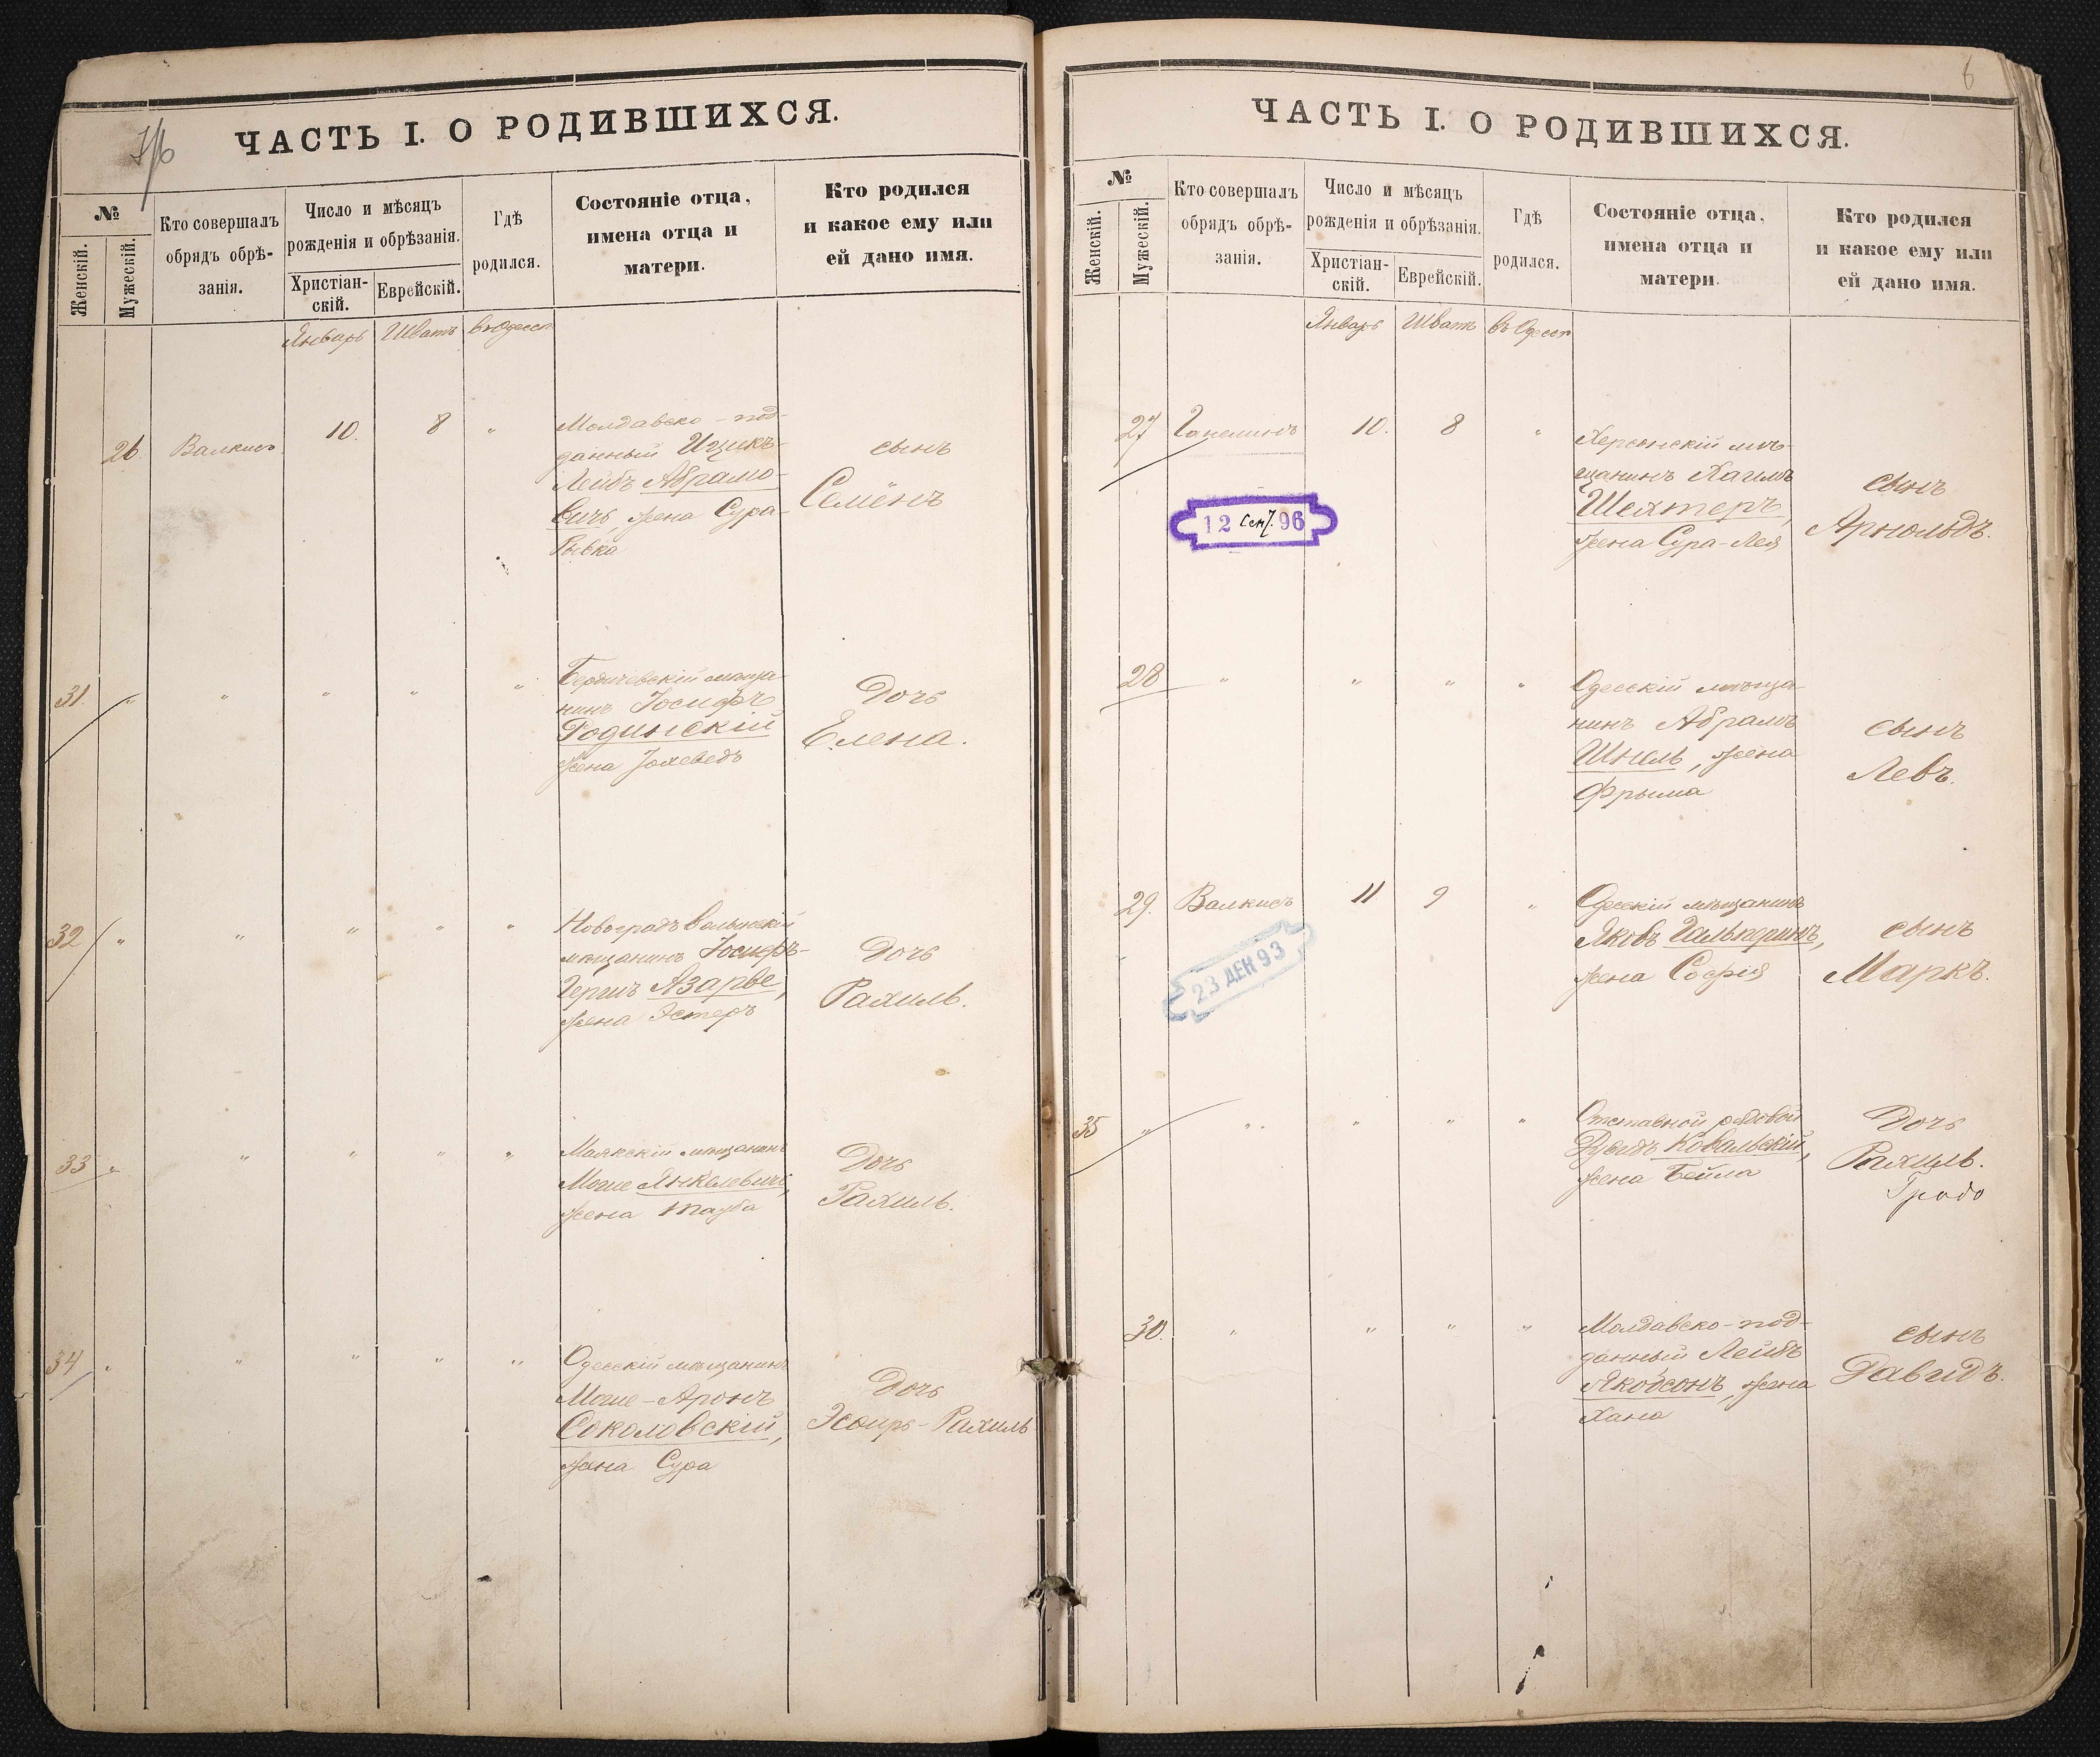 7/6
ЧАСТЬ I. О РОДИВШИХСЯ.
№
Женскій.
Мужескій.
Кто совершалъ
обрядъ обрѣ-
занія.
Число и мѣсяцъ
рожденія и обрѣзанія.
Христіан-
скій.
Еврейскій.
Гдѣ
родился.
Состояніе отца,
имена отца и
матери.
Кто родился
и какое ему или
ей дано имя.
Январь Шватъ въ Одессѣ
26. Валкисъ 10. 8 "
Молдавско-под-
данный Ицикъ-
Лейбъ Абрамо-
вичъ, жена Сура-
Рывка
сынъ
Семёнъ
31. " " " " "
Бердичевскій мѣща-
нинъ Іосифъ
Родинскій
жена Іохеведъ
Дочь
Елена.
32 " " " " "
Новоградъ Волынскій
мѣщанинъ Іосифъ-
Гершъ Азарве,
жена Эстеръ
Дочь
Рахиль.
33 " " " " "
Маякскій мѣщанинъ
Моше Янкелевичъ,
жена Тауба
Дочь
Рахиль.
34 " " " " "
Одесскій мѣщанинъ
Моше-Аронъ
Соколовскій,
жена Сура
Дочь
Эсѳирь-Рахиль
6
ЧАСТЬ I. О РОДИВШИХСЯ.
№
Женскій.
Мужескій.
Кто совершалъ
обрядъ обрѣ-
занія.
Число и мѣсяцъ
рожденія и обрѣзанія.
Христіан-
скій.
Еврейскій.
Гдѣ
родился.
Состояніе отца,
имена отца и
матери.
Кто родился
и какое ему или
ей дано имя.
Январь Шватъ въ Одессѣ
27 Ганелинъ 10. 8 "
12 Сент. 96
Херсонскій мѣ-
щанинъ Хаимъ
Шехтеръ,
жена Сура-Лея
сынъ
Арнольдъ.
28 " " " "
Одесскій мѣща-
нинъ Абрамъ
Шнель, жена
Фрыма
сынъ
Левъ.
29. Валкисъ 11 9 "
23 ДЕК 93
Одесскій мѣщанинъ
Яковъ Гальперинъ,
жена Софія
сынъ
Маркъ.
35 " " " " "
Отставной рядовой
Дувидъ Ковальскій,
жена Бейла
Дочь
Рахиль.
30. " " " "
Молдавско-под-
данный Лейбъ
Якобсонъ, жена
Хана
сынъ
Давидъ.